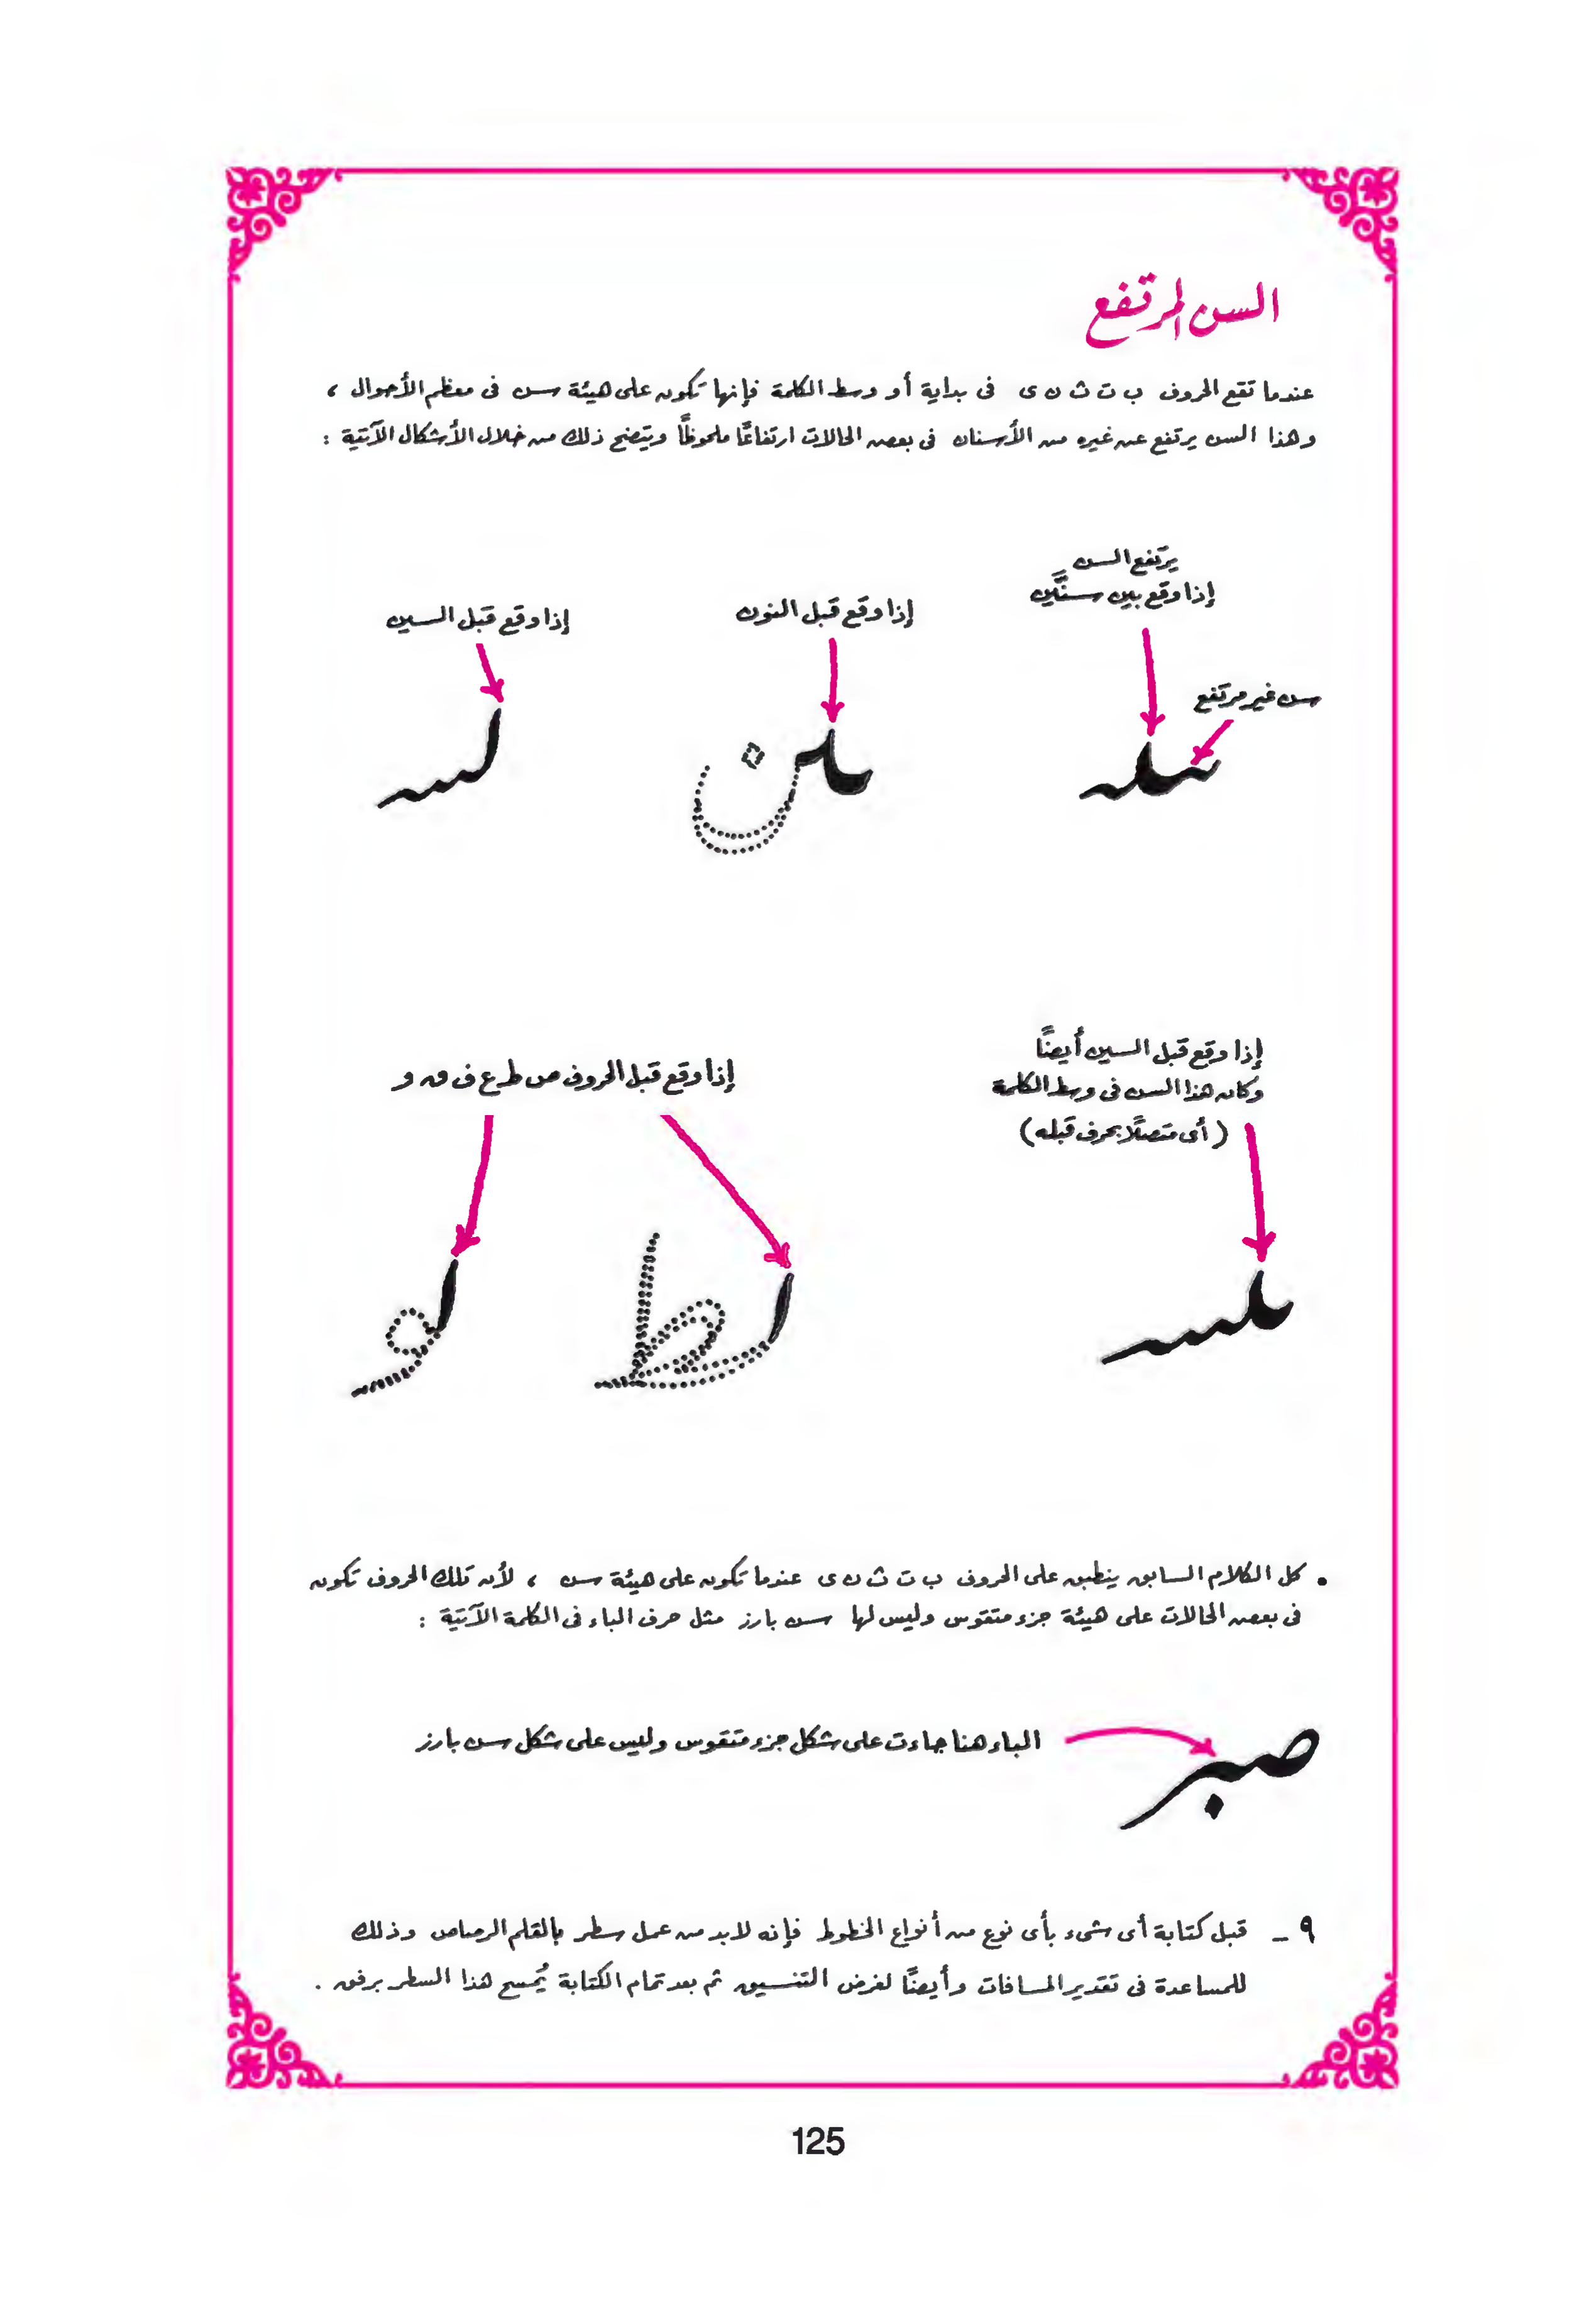 السن المرتفع
عندما تقع الحروف ب ت ث ن ى فى بداية أو وسط الكلمة فإنها تكون على هيئة سن فى معظم الأحوال ،
وهذا السن يرتفع عن غيره من الأسنان فى بعض الحالات ارتفاعًا ملحوظًا ويتضح ذلك من خلال الأشكال الآتية :
يرتفع السن
إذا وقع بين سنَّين
إذا وقع قبل النون
إذا وقع قبل السين
سن غير مرتفع
إذا وقع قبل السين أيضًا
وكان هذا السن فى وسط الكلمة
( أى متصلًا بحرف قبله )
إذا وقع قبل الحروف ص ط ع ف ق و
• كل الكلام السابق ينطبق على الحروف ب ت ث ن ى عندما تكون على هيئة سن ، لأن تلك الحروف تكون
فى بعض الحالات على هيئة جزء متقوس وليس لها سن بارز مثل حرف الباء فى الكلمة الآتية :
صبر
الباء هنا جاءت على شكل جزء متقوس وليس على شكل سن بارز
٩ - قبل كتابة أى شىء بأى نوع من أنواع الخطوط فإنه لابد من عمل سطر بالقلم الرصاص وذلك
للمساعدة فى تقدير المسافات وأيضًا لغرض التنسيق ثم بعد تمام الكتابة يُمسح هذا السطر برفق .
125